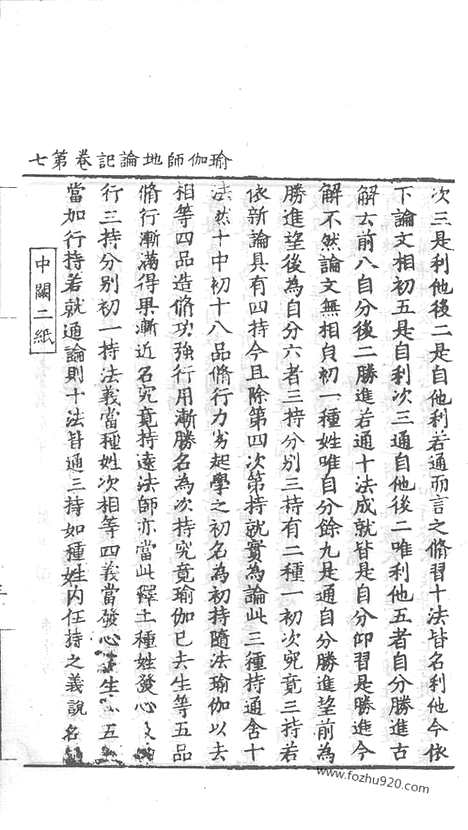 瑜伽師地論記卷第七
次三是利他後二是自他利若通而言之脩習十法皆名利他今依
下論文相初五是自利次三通自他後二唯利他五者自分勝進古
解云前八自分後二勝進若通十法成就皆是自分仰習是勝進今
解不然論文無相貟初一種姓唯自分餘九是通自分勝進望前為
勝進望後為自分六者三持分別三持有二種一初次究竟三持若
依新論具有四持今且除第四次第持就實為論此三種持通舍十
法然十中初十八品脩行力劣起學之初名為初持隨法瑜伽以去
相等四品造脩功強行用漸勝名為次持究竟瑜伽已去生等五品
脩行漸滿得果漸近名究竟持遠法師亦當此釋土種姓發心
行三持分別初一持法義當種姓次相等四義當發心生五
當加行持若就通論則十法皆通三持如種姓內任持之義說名
中闕二紙
www.fozhu920.com